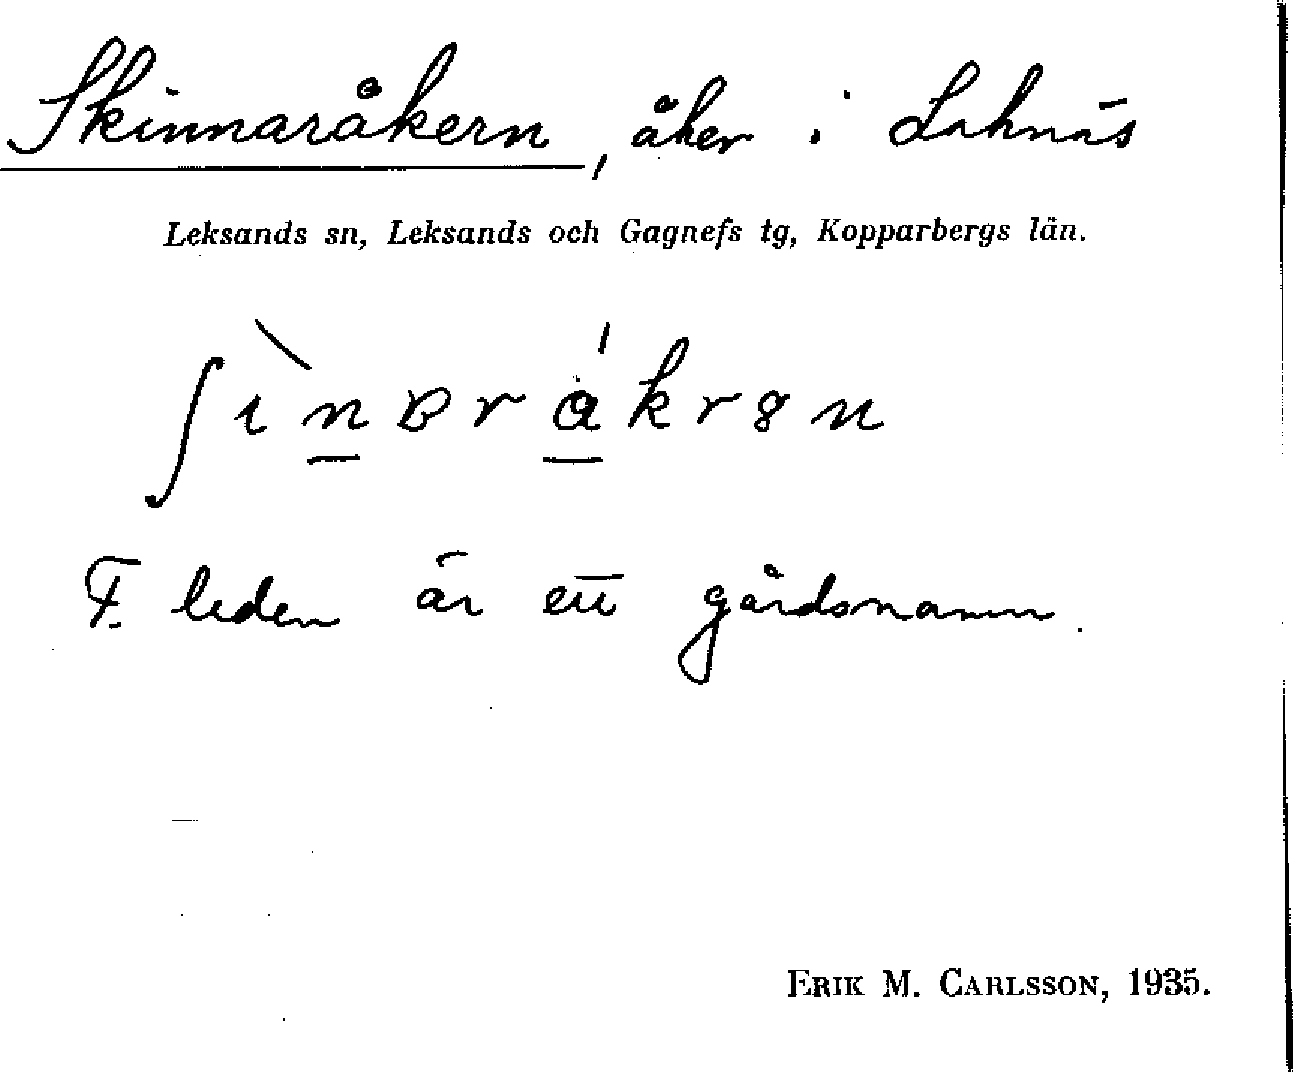 Skinnaråkern, åker i Laknäs
Leksands sn, Leksands och Gagnefs tg, Kopparbergs län.
F. leden är ett gårdsnamn.
ERIK M. CARLSSON, 1935.